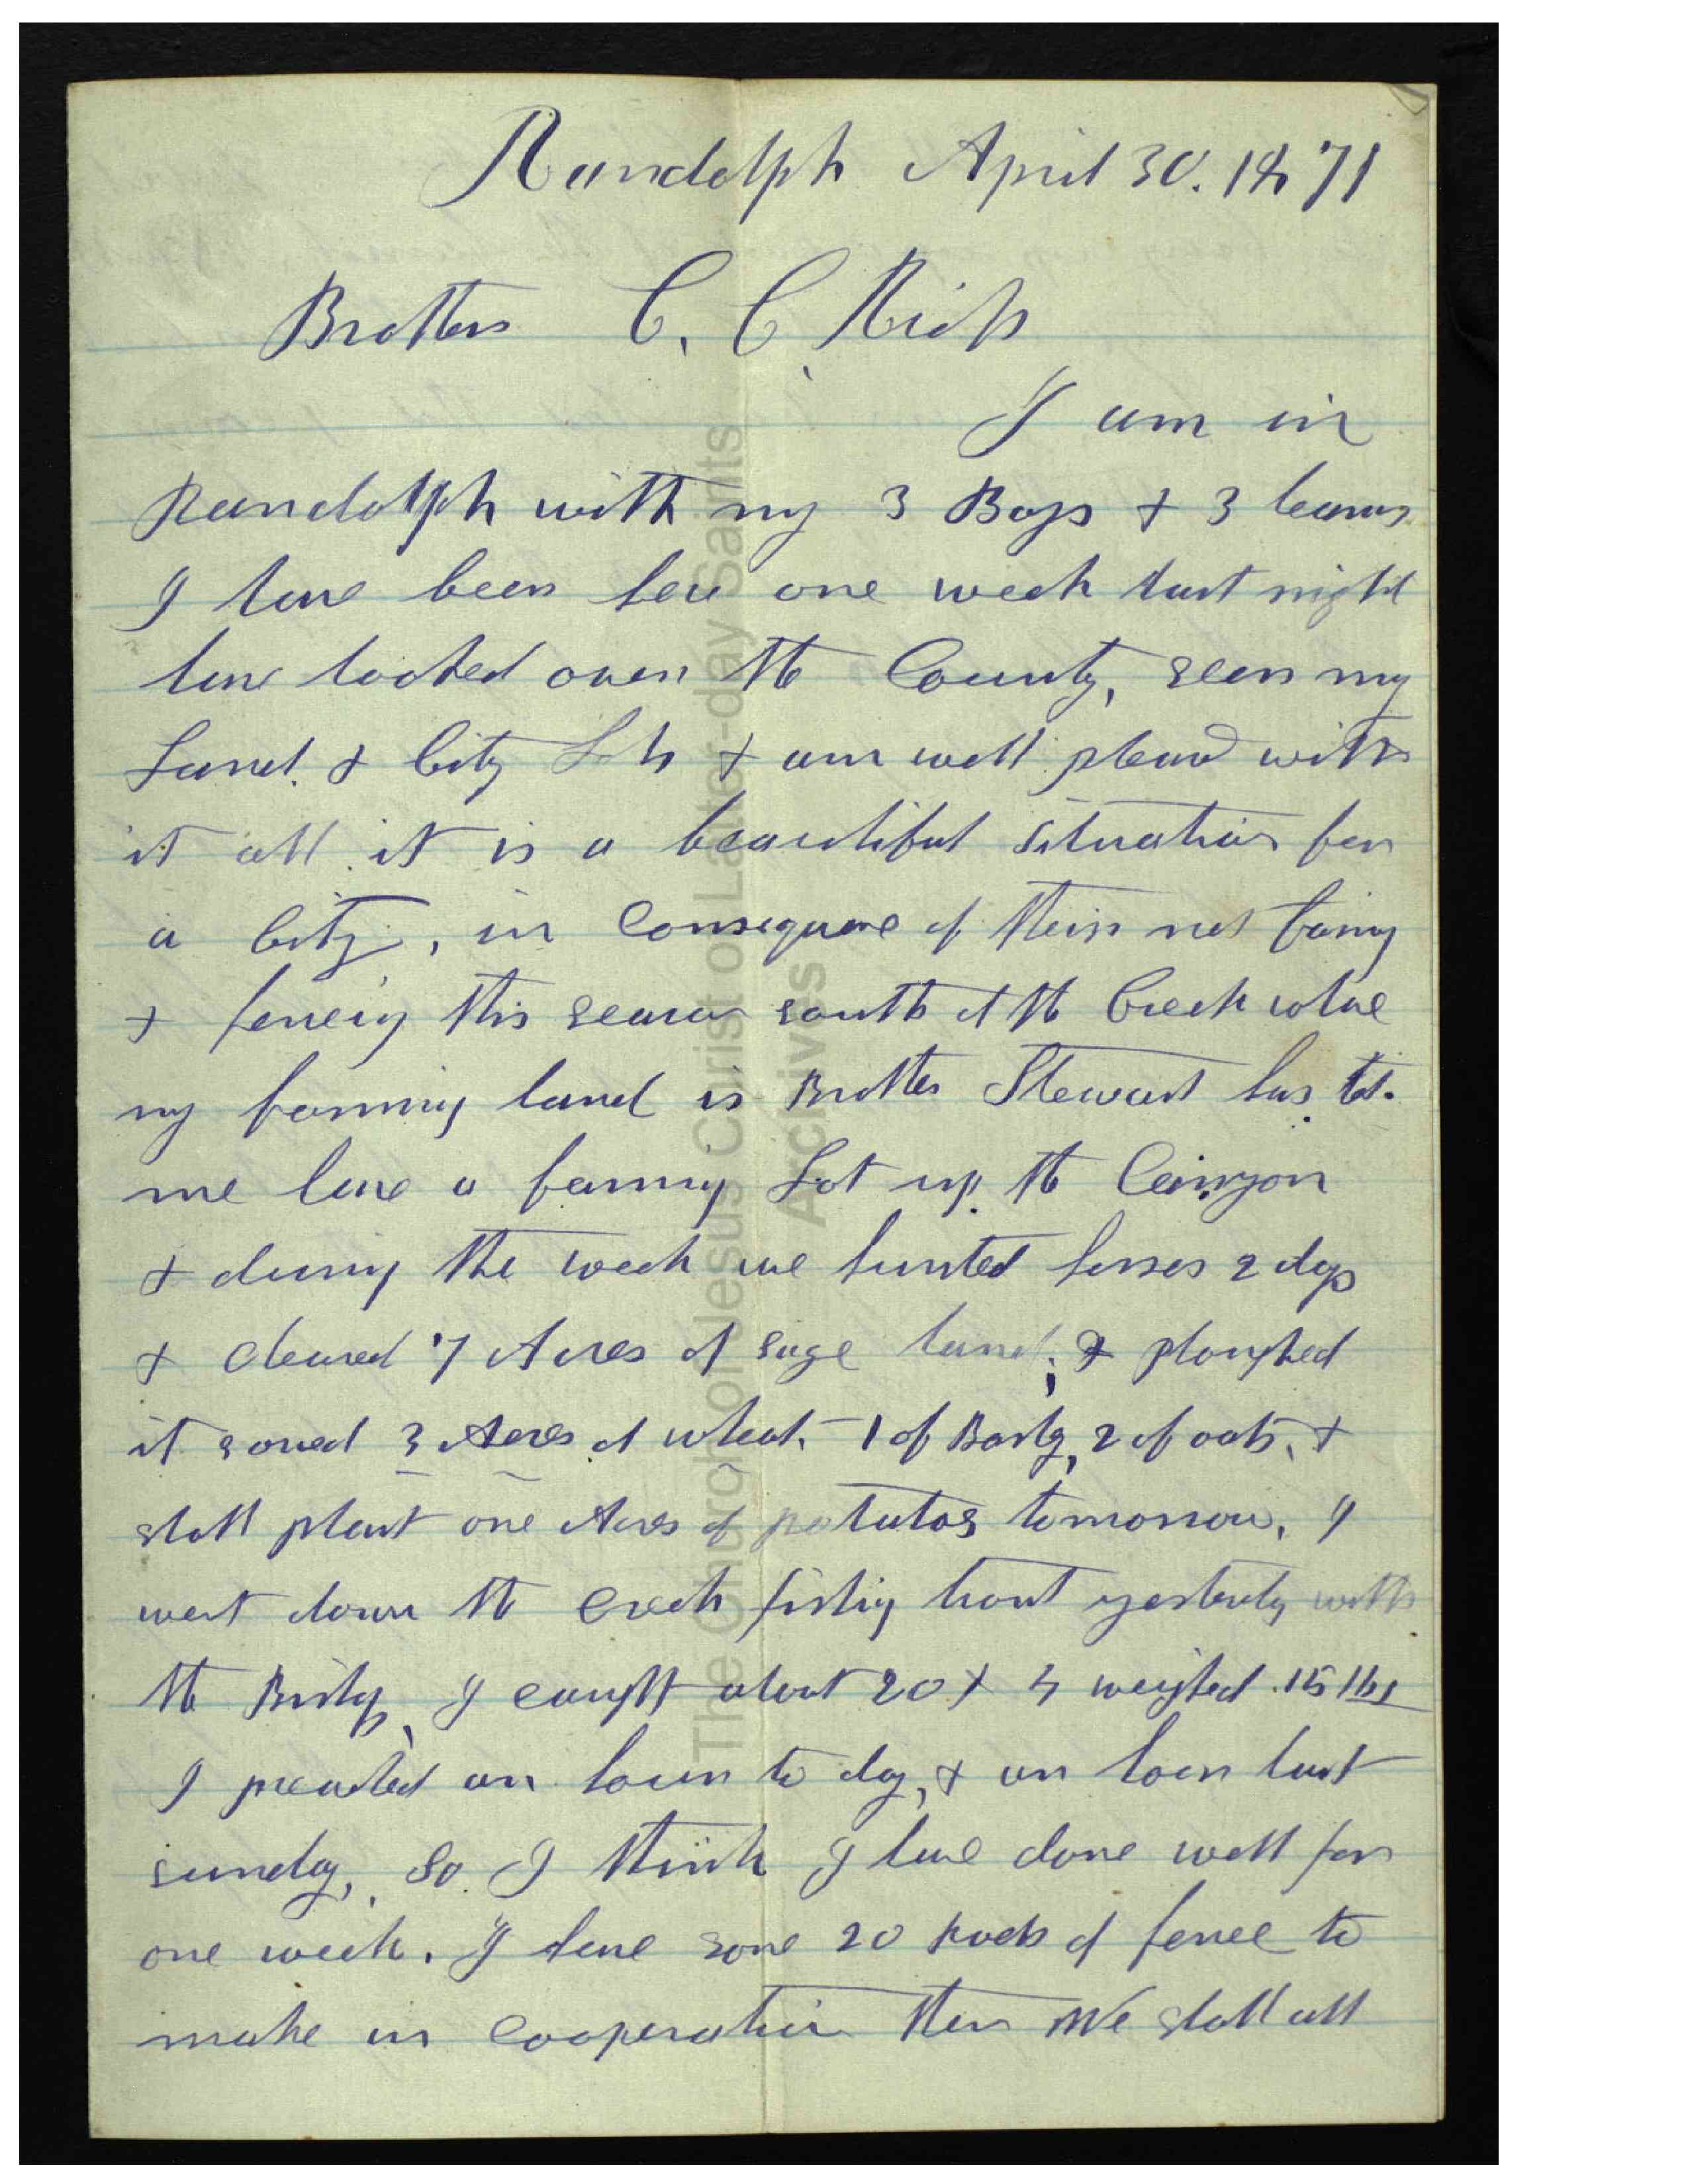 Randolph April 30. 1871
Brother C. C. Rich
I am in
Randolph with my 3 Boys & 3 teams
I have been here one week last night
have looked over the County, seen my
Land & City Lots & am well pleased with
it all it is a beautiful situation for
a City, in Consequence of their not farming
& fencing this season south of the Creek whare
my farming land is Brother Stewart has let
me have a farming Lot up the Canyon
& during the week we hunted horses 2 days
& cleared 7 Acres of sage land, & ploughed
it sowed 3 Acres of wheat. 1 of Barly, 2 of oats, &
shall plant one Acres of potatos tomorrow, I
went down the creek fishing trout yesterday with
the Bishop, I caught about 20 & 5 weighed 15 lbs
I preached an hour to day, & an hour last
sunday, So I think I have done well for
one week. I have some 20 Rods of fence to
make in Cooperation then We shall all
The Church of Jesus Christ of Latter-day Saints
Archives